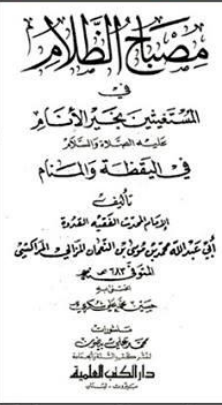 مصباح الظلام
في
المستغيثين بخير الأنام
عليه الصلاة والسلام
في اليقظة والمنام
تأليف
الإمام المحدث الفقيه القدوة
أبي عبد الله محمد بن موسى بن النعمان المزالي المراكشي
المتوفى ٦٨٣ هـ
اعتنى به
حسين محمد علي شكري
منشورات
محمد علي بيضون
لنشر كتب السنة والجماعة
دار الكتب العلمية
بيروت - لبنان